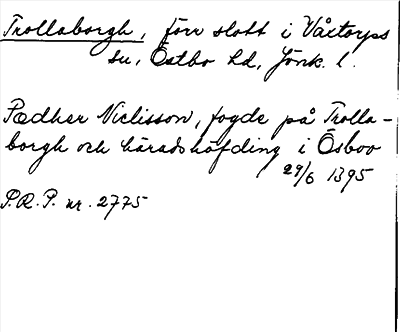 Trollaborgh, förr slott i Våxtorps
sn, Östbo hd, Jönk. l.
Pædher Niclisson, fogde på Trolla-
borgh och häradshöfding i Ösboo
29/6 1395
P.R.P. nr. 2775